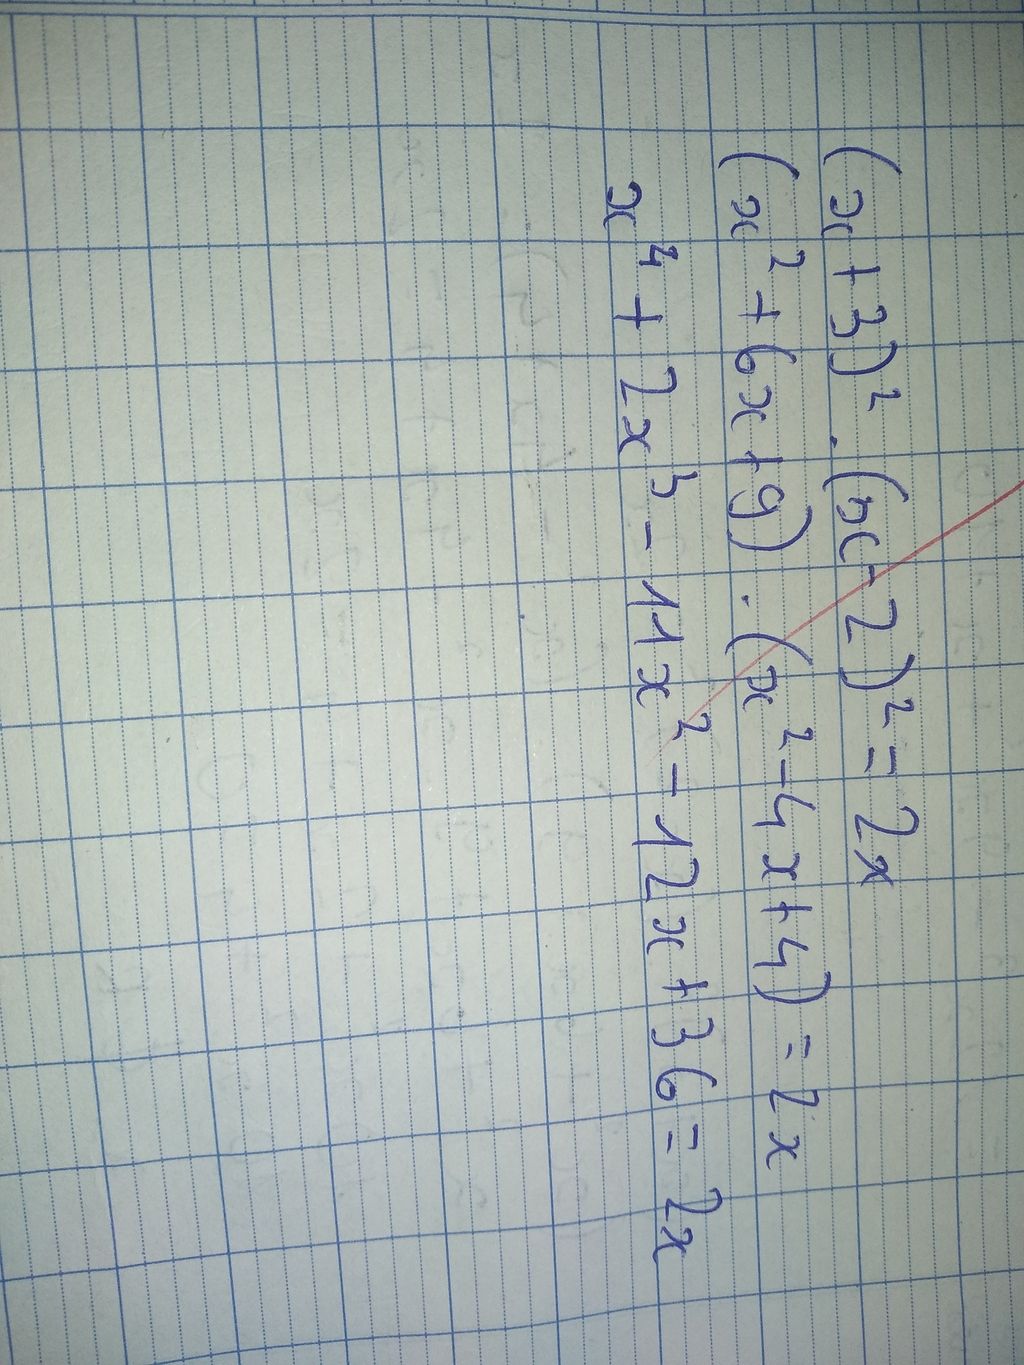 (x+3)² . (x-2)² = 2x
(x² + 6x + 9) . (x² - 4x + 4) = 2x
x⁴ + 2x³ - 11x² - 12x + 36 = 2x